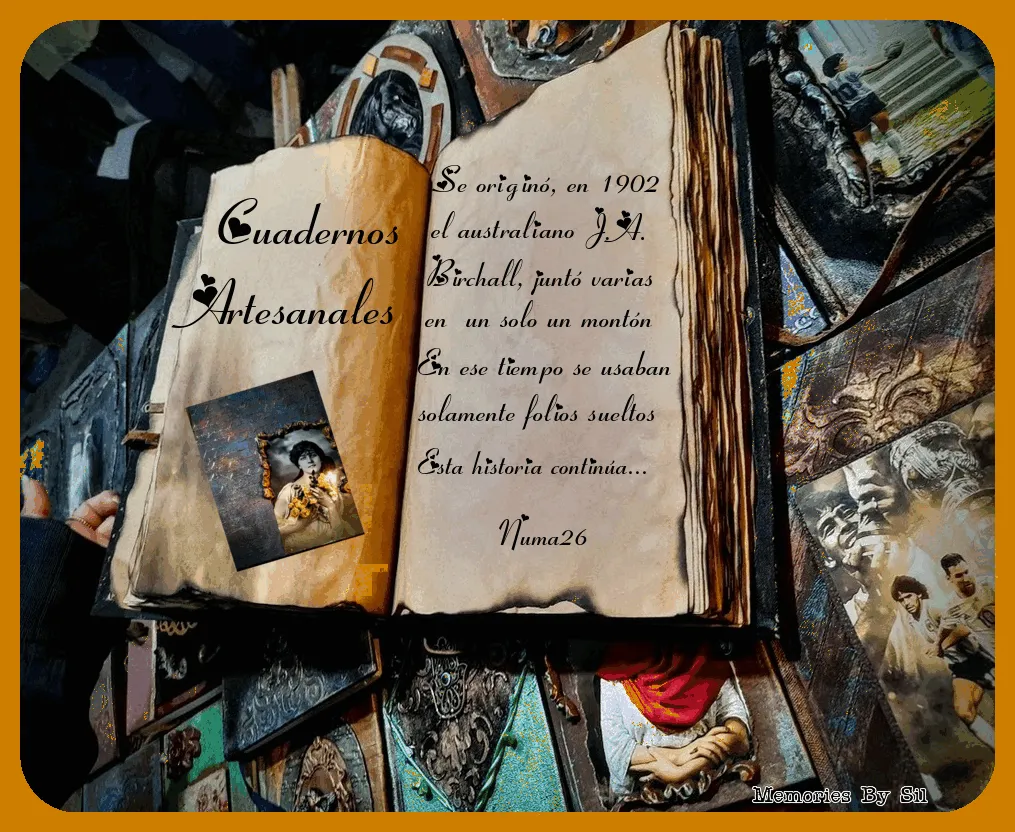 Cuadernos
Artesanales
Se originó, en 1902
el australiano J.A.
Birchall, juntó varias
en un solo un montón
En ese tiempo se usaban
solamente folios sueltos
Esta historia continúa...
Numa26
Memories By Sil